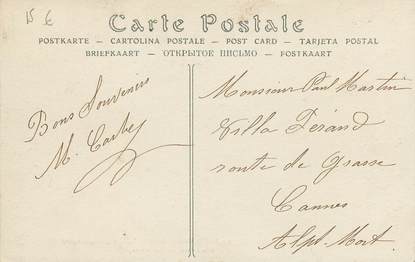 15 €
Carte Postale
POSTKARTE — CARTOLINA POSTALE — POST CARD — TARJETA POSTAL
BRIEFKAART — ОТКРЫТОЕ ПИСЬМО — POSTKAART
Bons Souvenirs
M.
Monsieur Paul Martin
Villa
route de Grasse
Cannes
Alpes-Marit